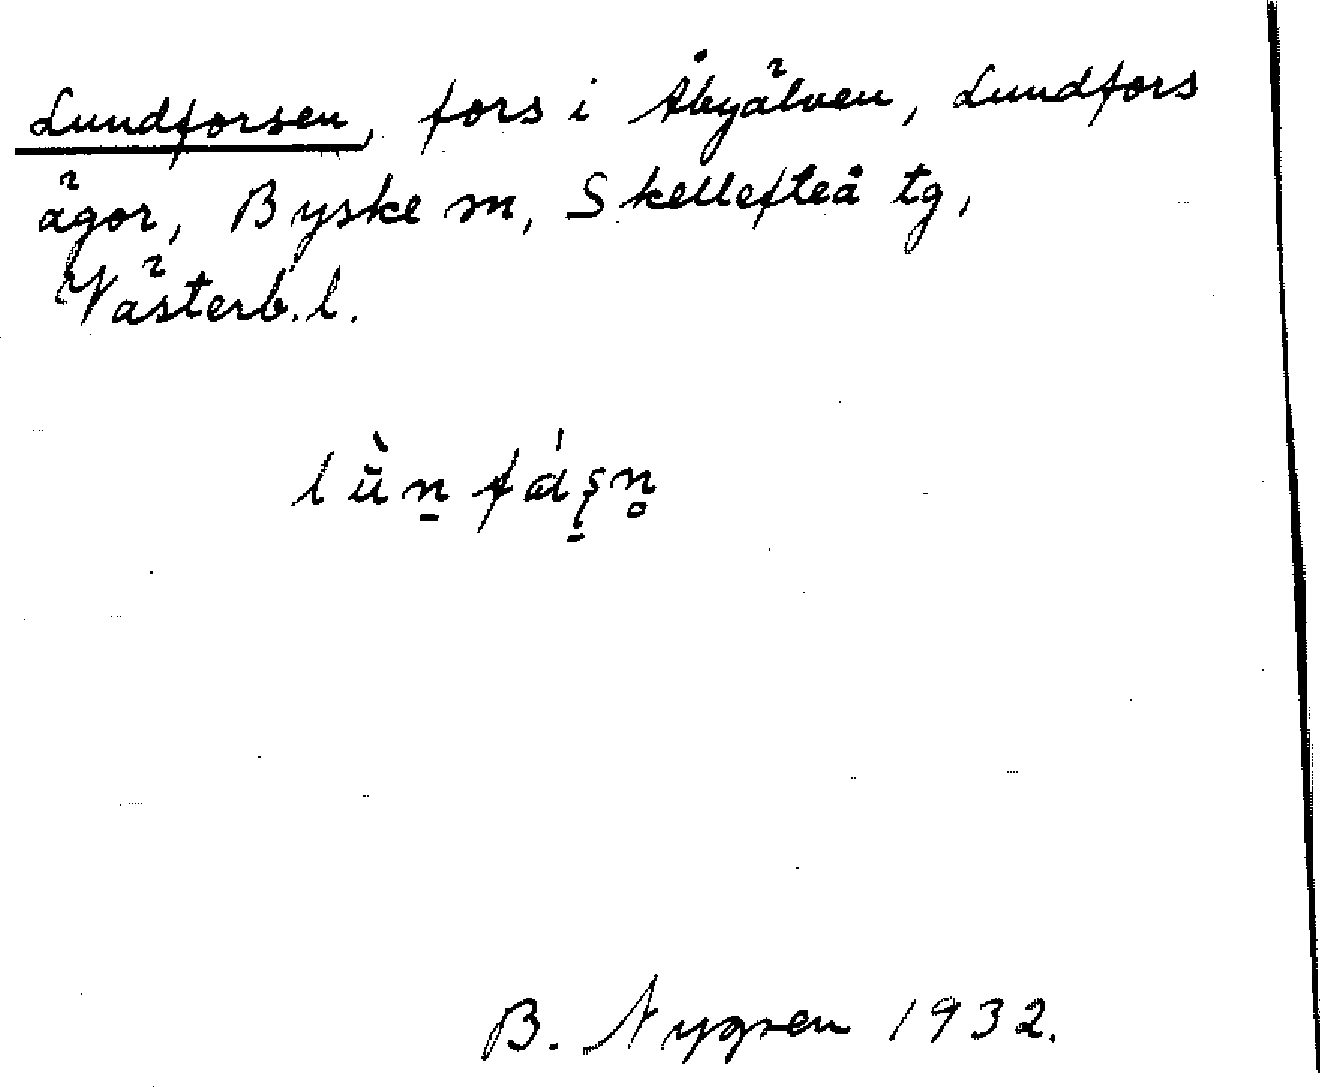 Lundforsen, fors i Åbyälven, Lundfors
ägor, Byske sn, Skellefteå tg,
Västerb. l.
B. Nygren 1932.